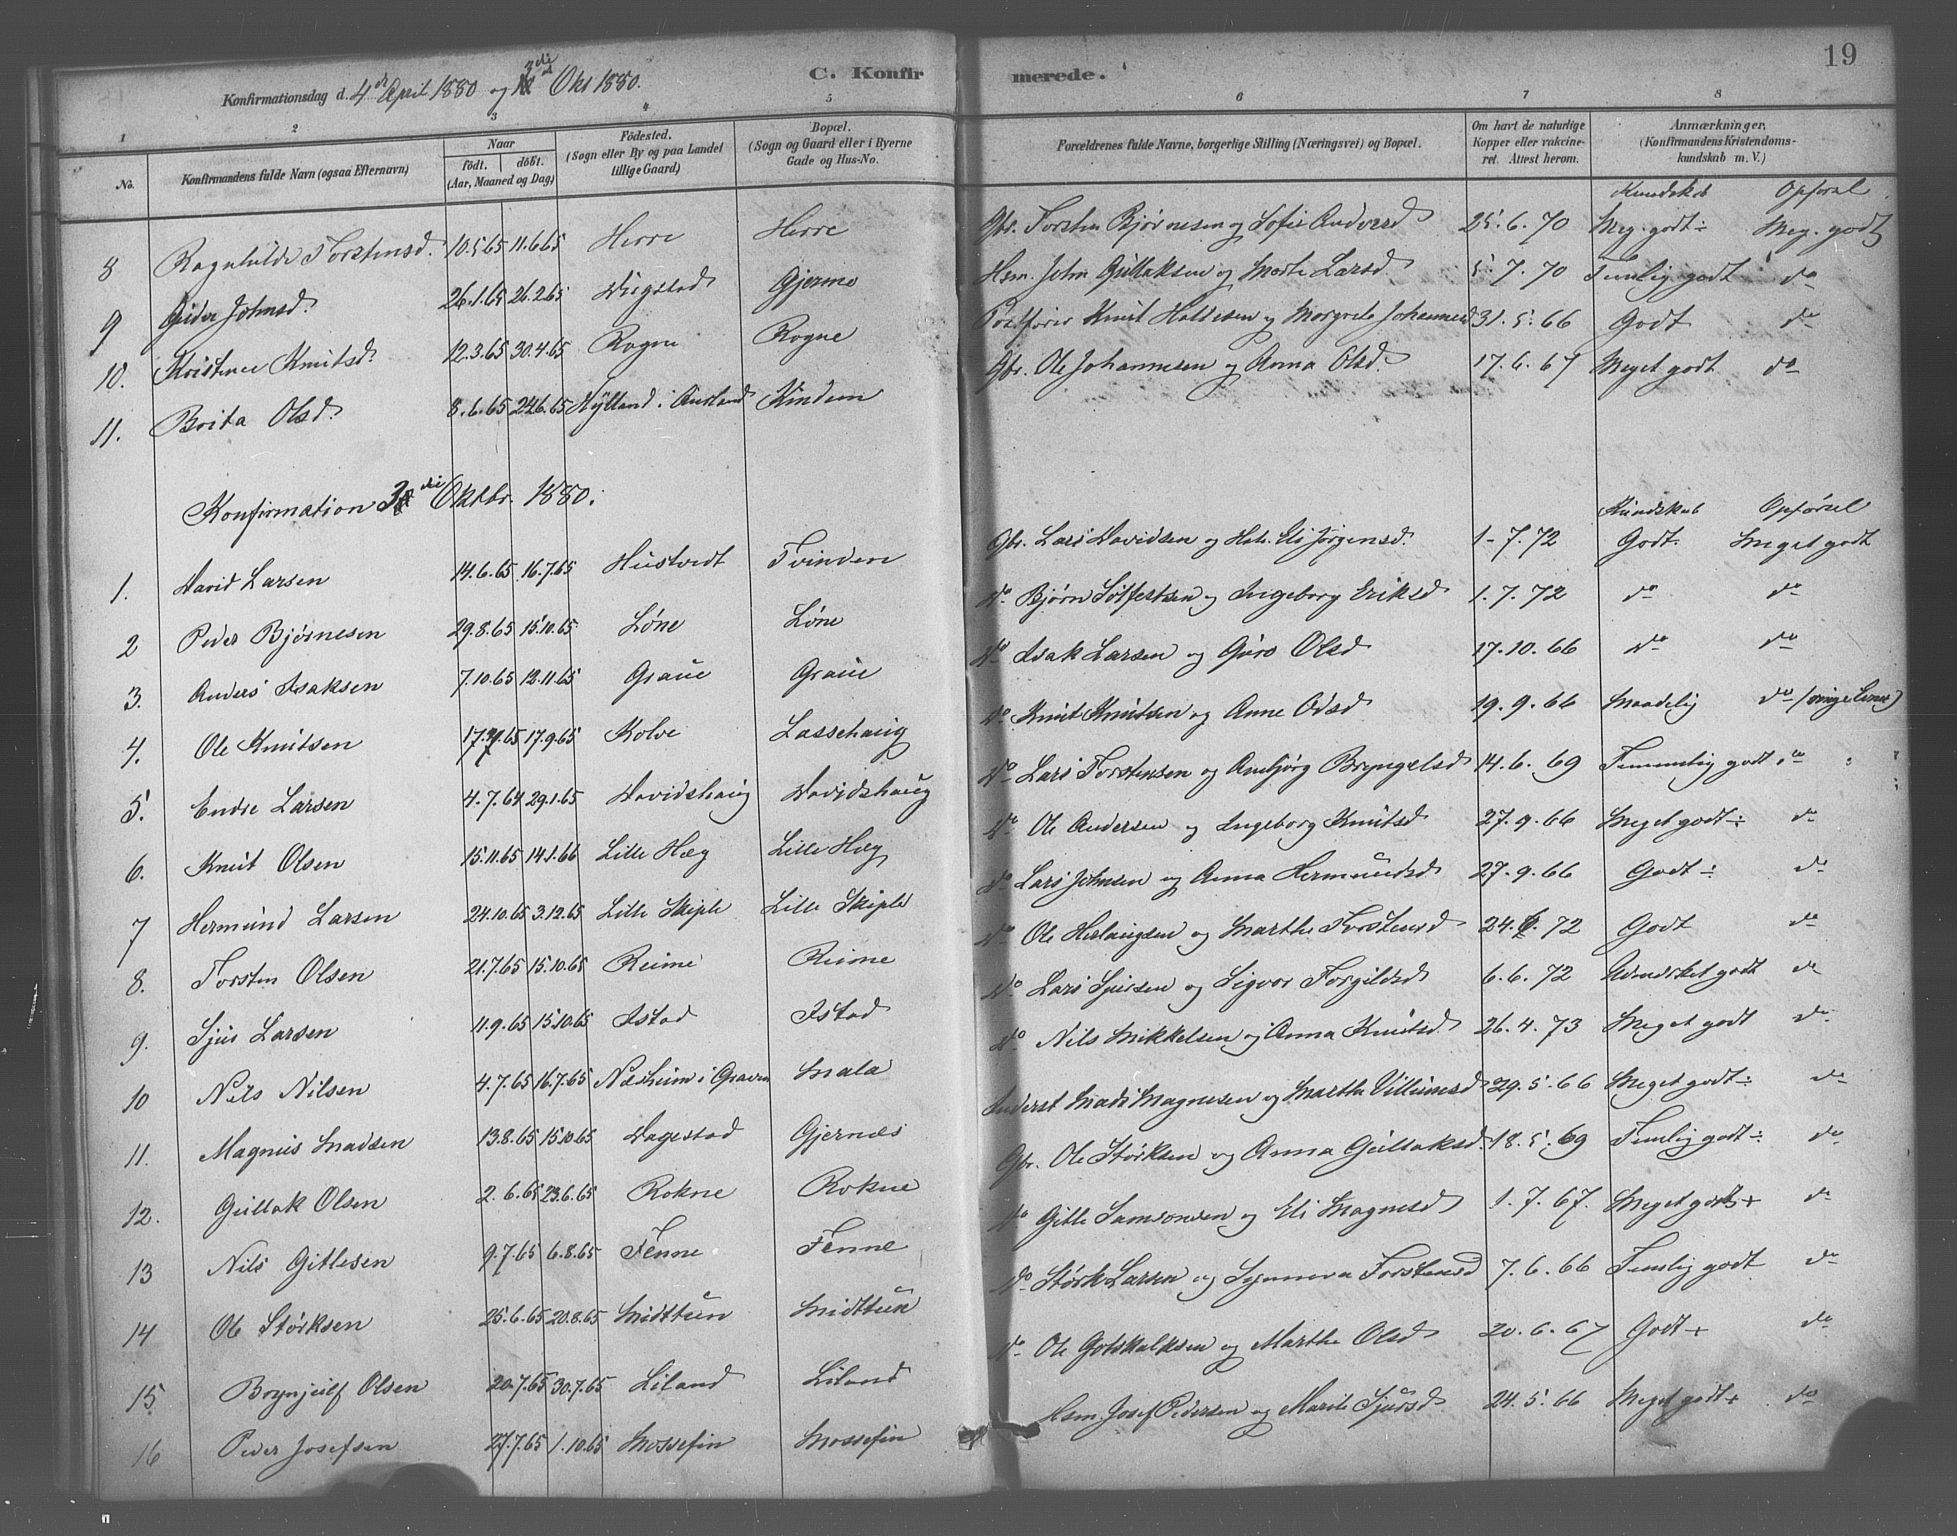 19
Konfirmationsdag d. 4de April 1880 og 3die Okt 1880.
C. Konfirmerede.
1 2 3 4 5 6 7 8
No. Konfirmandens fulde Navn (ogsaa Efternavn) Naar födt. döbt. (Aar, Maaned og Dag) Födested. (Sogn eller By og paa Landet tillige Gaard) Bopæl. (Sogn og Gaard eller i Byerne Gade og Hus-No. Forældrenes fulde Navne, borgerlige Stilling (Næringsvei) og Bopæl. Om havt de naturlige Kopper eller vakcineret. Attest herom. Anmærkninger. (Konfirmandens Kristendomskundskab m. V.)
Kundskab Opførsel
8 Ragnhilde Torstensd. 10.5.65 11.6.65 Herre Herre Gbr. Torsten Bjørnesen og Sofie Andersd 25.6.70 Meg. godt÷ Meg. godt
9 Gider Johnsd. 26.1.65 26.2.65 Wigstad Gjerme Hsm. John Gullaksen og Marte Larsd. 5.7.70 Temlig godt do
10. Kristence Knutsd. 12.3.65 30.4.65 Rogne Rogne Postfører Knut Hallesen og Margrete Johannesd 31.5.66 Godt do
11. Brita Olsd 8.6.65 24.6.65 Nylland i Aurland Kindem Gbr. Ole Johannesen og Anna Olsd. 17.6.67 Meget godt do
Konfirmation 3die Oktbr. 1880.
Kundskab Opførsel
1. David Larsen 14.6.65 16.7.65 Hustvedt Tvinden Gbr. Lars Davidsen og Hst. Eli Jørgensd. 1-7.72 Godt. Meget godt
2 Peder Bjørnesen 29.8.65 15.10.65 Løne Løne Do Bjørn Sølfestsen og Ingeborg Eriksd 1.7.72 do do
3. Anders Isaksen 7.10.65 12.11.65 Graue Graue Do Isak Larsen og Guro Olsd 17.10.66 do do
4. Ole Knutsen 17.7.65 17.9.65 Kolve Lassehaug Do Knut Knutsen og Anne Odsd 19.9.66 Maadelig do
5. Endre Larsen 4.7.64 29.1.65 Davidshaug Davidshaug Do Lars Torstensen og Ambjørg Bryngelsd 14.6.69 Temmelig godt do
6. Knut Olsen 15.11.65 14.1.66 Lille Hæg Lille Hæg Do Ole Andersen og Ingeborg Knutsd 27.9.66 Meget godt÷ do
7 Hermund Larsen 24.10.65 3.12.65 Lille Skiple Lille Skiple Do Lars Johnsen og Anna Hermundsd 27.9.66 Godt÷ do
8. Torsten Olsen 21.7.65 15.10.65 Reime Reime Do Ole Herlaugsen og Marthe Torstensd 24.6.72 Godt do
9. Sjur Larsen 11.9.65 15.10.65 Istad Istad Do Lars Sjursen og Sigvor Torgilsd 6.6.72 Udmærket godt do
10 Nils Nilsen 4.7.65 16.7.65 Næsheim i Graven Mala Do Nils Mikkelsen og Anna Knutsd 26.4.73 Meget godt do
11. Magnus Madsen 13.8.65 15.10.65 Dagestad Gjernes Inderst Mads Magnesen og Martha Villumsd 29.5.66 Meget godt÷ do
12. Gullak Olsen 2.6.65 23.6.65 Rokne Rokne Gbr. Ole Størksen og Anna Gullaksd. 18.5.69 Temlig godt÷ do
13 Nils Gitlesen 9.7.65 6.8.65 Tenne Tenne Do Gitle Samsonsen og Eli Magnesd 1.7.67. Meget godt+ do
14 Ole Størksen 25.6.65 20.8.65 Midttun Midttun Do Størk Larsen og Synneva Torstensd 7.6.66 Temlig godt do
15 Brynjulf Olsen 20.7.65 30.7.65 Liland Liland Do Ole Gotskalksen og Marthe Olsd 20.6.67 Godt+ do
16 Peder Josefsen 27.7.65 1.10.65 Mossefin Mossefin Hsm. Josef Pedersen og Marite Sjursd 24.5.66 Meget godt+ do